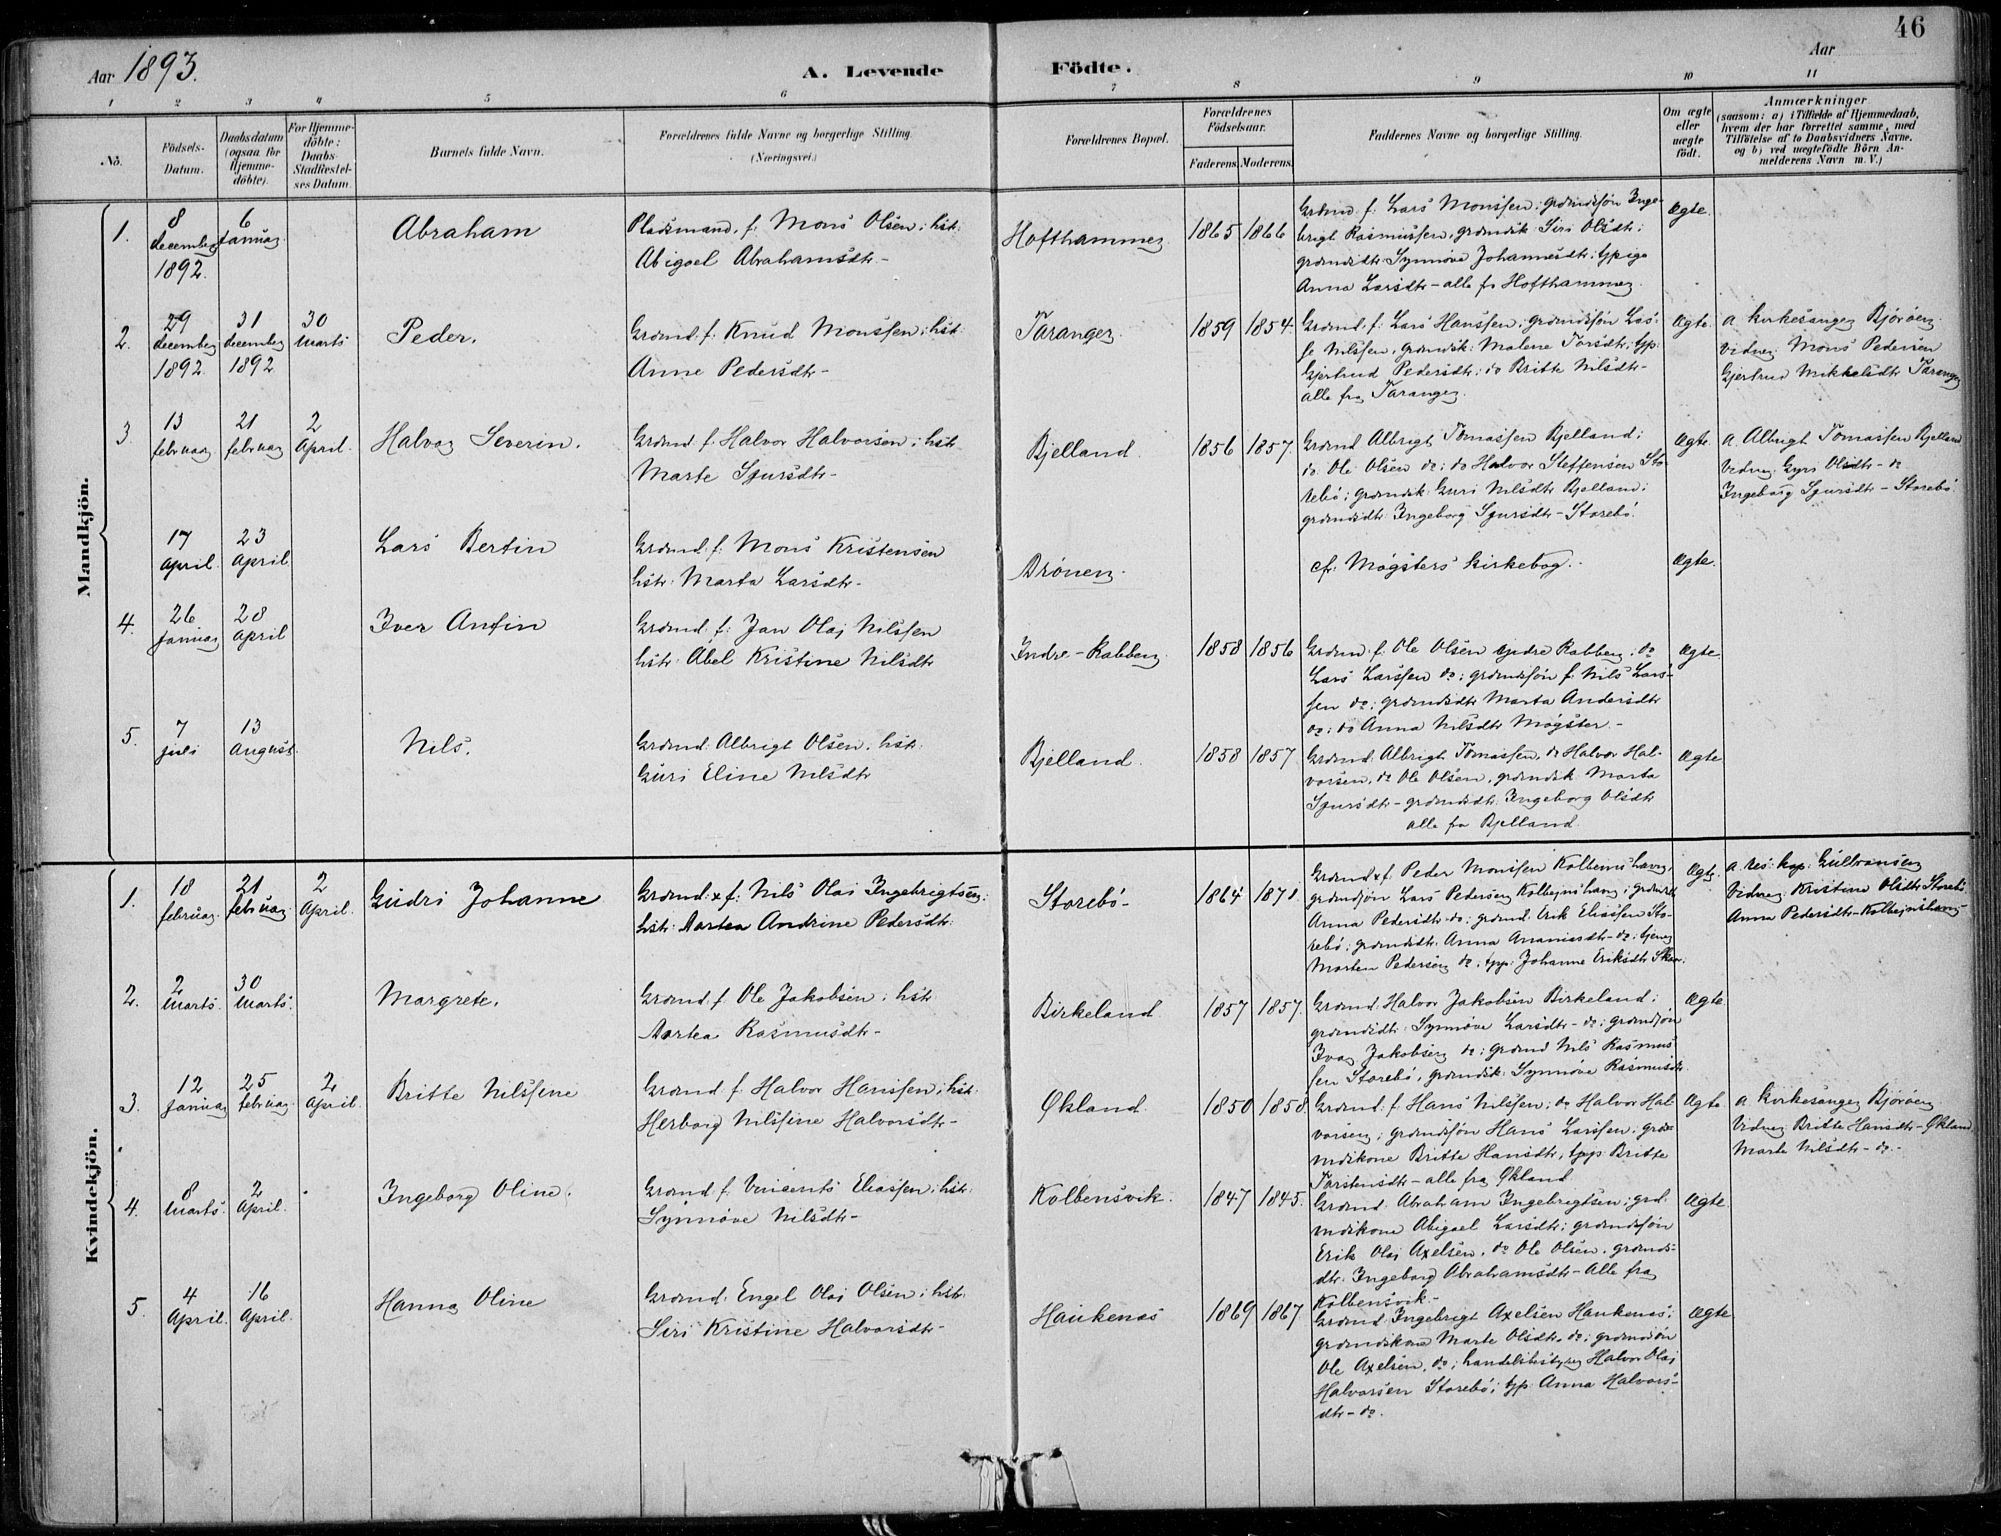 46
Aar 1893.
A. Levende Födte.
Aar
1 2 3 4 5 6 7 8 9 10 11
No.
Födsels-
Datum.
Daabsdatum
(ogsaa for
Hjemme-
döbte).
For Hjemme-
döbte:
Daabs-
Stadfæstel-
ses Datum
Barnets fulde Navn.
Forældrenes fulde Navne og borgerlige Stilling.
(Næringsvei.)
Forældrenes Bopæl.
Forældrenes
Födselsaar.
Faderens. Moderens.
Faddernes Navne og borgerlige Stilling.
Om ægte
eller
uægte
födt.
Anmærkninger
(saasom: a) i Tilfælde af Hjemmedaab,
hvem der har forrettet samme, med
Tilföielse af to Daabsvidners Navne.
og b) ved uægtefödte Börn An-
melderens Navn m. V.)
Mandkjön.
1.
8
december
1892.
6
Januar
Abraham
Pladsmand. f. Mons Olsen; hst.
Abigael Abrahamsdtr-
Hofthammer
1865 1866
Grdmd. f. Lars Monssen; grdmdssøn Inge-
brigt Rasmussen, grdmdsk. Siri Olsdtr;
grdmdsdtr Synnøve Johannesdtr; tjpige
Anna Larsdtr - alle fr Hofthammer.
Ægte.
2.
29
december
1892.
31
december
1892
30
Marts
Peder.
Grdmd. f. Knud Monssen; hst.
Anne Pedersdtr-
Taranger.
1859 1854.
Grdmd. f. Lars Hanssen; grdmdssøn Las-
se Nilssen, grdmdsk. Malene Torsdtr; tjp:
Gjertrud Pedersdtr; do Britte Nilsdtr-
alle fra Taranger.
Ægte.
a. Kirkesanger Bjørøen.
Vidner: Mons Pedersen
Gjertrud Mikkelsdtr Taranger
3.
13
februar
21
februar
2
April.
Halvor Severin.
Grdmd. f. Halvor Halvorsen; hst.
Marte Sjursdtr-
Bjelland.
1856 1857.
Grdmd Albrigt Tomassen Bjelland;
do. Ole Olsen do; do Halvor Steffensen Sto-
rebø; grdmdsk. Guri Nilsdtr Bjelland;
grdmdsdtr. Ingeborg Sjursdtr - Storebø.
Ægte.
a. Albrigt Tomassen Bjelland
Vidner: Gyri Olsdtr - do
Ingeborg Sjursdtr - Storebø.
17
April.
23
April
Lars Bertin
Grdmd. f. Mons Kristensen
hstr. Marta Larsdtr-
Drønen.
cfr. Møgsters Kirkebog.
Ægte.
4.
26
Januar
28
April
Iver Anfin
Grdmd. f. Jan Olai Nilssen
hstr. Abel Kristine Nilsdtr
Indre-Rabben.
1858 1856
Grdmd. f. Ole Olsen indre Rabben; do
Lars Larssen do; grdmdssøn f. Nils Lars-
sen do; grdmdsdtr Marta Andersdtr
do; do Anna Nilsdtr Møgster.-
Ægte.
5.
7
Juli
13
August.
Nils.
Grdmd. Albrigt Olsen, hst.
Guri Eline Nilsdtr
Bjelland.
1858 1857
Grdmd. Albrigt Tomassen, do Halvor Hal-
vorsen, do Ole Olsen, grdmdsk. Marta
Sjursdtr - grdmdsdtr. Ingeborg Olsdtr
alle fra Bjelland.
Ægte
Kvindekjön.
1.
18
februar
21
februar
2
April.
Gudri Johanne
Grdmd. f. Nils Olai Ingebrigtsen;
hstr. Martea Andrine Pedersdtr.
Storebø-
1864 1871.
Grdmd f. Peder Monssen Kolbeinshavn,
grdmdssøn Lars Pedersen Kolbeinshavn; grdmdsdtr
Anna Pedersdtr - do; grdmd. Erik Eliassen Sto-
rebø; grdmdsdtr. Anna Ananiasdtr - do; tjener
Morten Pedersen do, tjp. Johanne Eriksdtr
Ægte.
a. res: kap: Gulbransen
Vidner: Kristine Olsdtr Storebø
Anna Pedersdtr - Kolbeinshavn
2.
2
Marts.
30
Marts.
Margrete.
Grdmd. f Ole Jakobsen; hst
Martea Rasmusdtr-
Birkeland.
1857 1857.
Grdmd. Halvor Jakobsen Birkeland;
grdmdsdtr. Synnøve Larsdtr - do; grdmdssøn
Ivar Jakobsen do; grdmd Nils Rasmus
sen Storebø, grdmdsk. Synnøve Rasmusdtr.
Ægte
3.
12
Januar
25
februar.
2
April.
Britte Nilssine
Grdmd f. Halvor Hanssen; hst.
Herborg Nilssine Halvorsdtr-
Økland.
1850 1858.
Grdmd. f. Hans Nilssen; do Halvor Hal-
vorsen; grdmdssøn Hans Larssen; grd-
mdskone Britte Hansdtr, tjp: Britte
Torstensdtr - alle fra Økland
Ægte.
a. Kirkesanger Bjørøen
Vidner Britte Hansdtr - Økland
Marte Nilsdtr - do -
4.
8
Marts.
2
April.
Ingeborg Oline.
Grdmd f. Vincents Eliassen; hst:
Synnøve Nilsdtr-
Kolbensvik.
1847 1845.
Grdmd. Abraham Ingebrigtsen; grd.
mdskone Abigael Larsdtr; grdmdssøn
Erik Olai Axelsen, do Ole Olsen, grdmds-
dtr. Ingeborg Abrahamsdtr - Alle fra
Kolbensvik.-
Ægte.
5.
4
April.
16
April.
Hanna Oline
Grdmd. Engel Olai Olsen; hst.
Siri Kristine Halvorsdtr-
Haukenæs
1869 1867.
Grdmd. Ingebrigt Axelsen Haukenæs;
grdmdskone Marte Olsdtr - do; grdmdssøn
Ole Axelsen, do; handelsbestyrer Halvor Olai
Halvorsen Storebø; tjp. Anna Halvors-
dtr - do.
Ægte